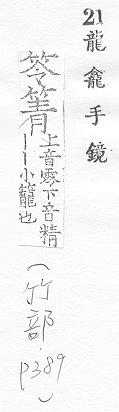 21 龍龕手鏡
笭箐
上音零下音精
丨丨小籠也
(竹部 p389)